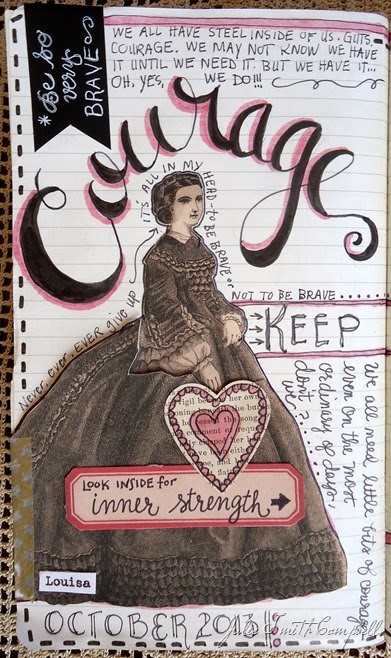 *Be so
very
BRAVE
WE ALL HAVE STEEL INSIDE OF US. GUTS.
COURAGE. WE MAY NOT KNOW WE HAVE
IT UNTIL WE NEED IT. BUT WE HAVE IT...
OH, YES, WE DO!!!
Courage
IT'S ALL IN MY HEAD-TO BE BRAVE or
NOT TO BE BRAVE......
Never, ever, EVER give up
KEEP
We all need little bits of courage
even on the most
ordinary of days,
don't
we?
LOOK INSIDE for
inner strength
Louisa
OCTOBER 2013!!